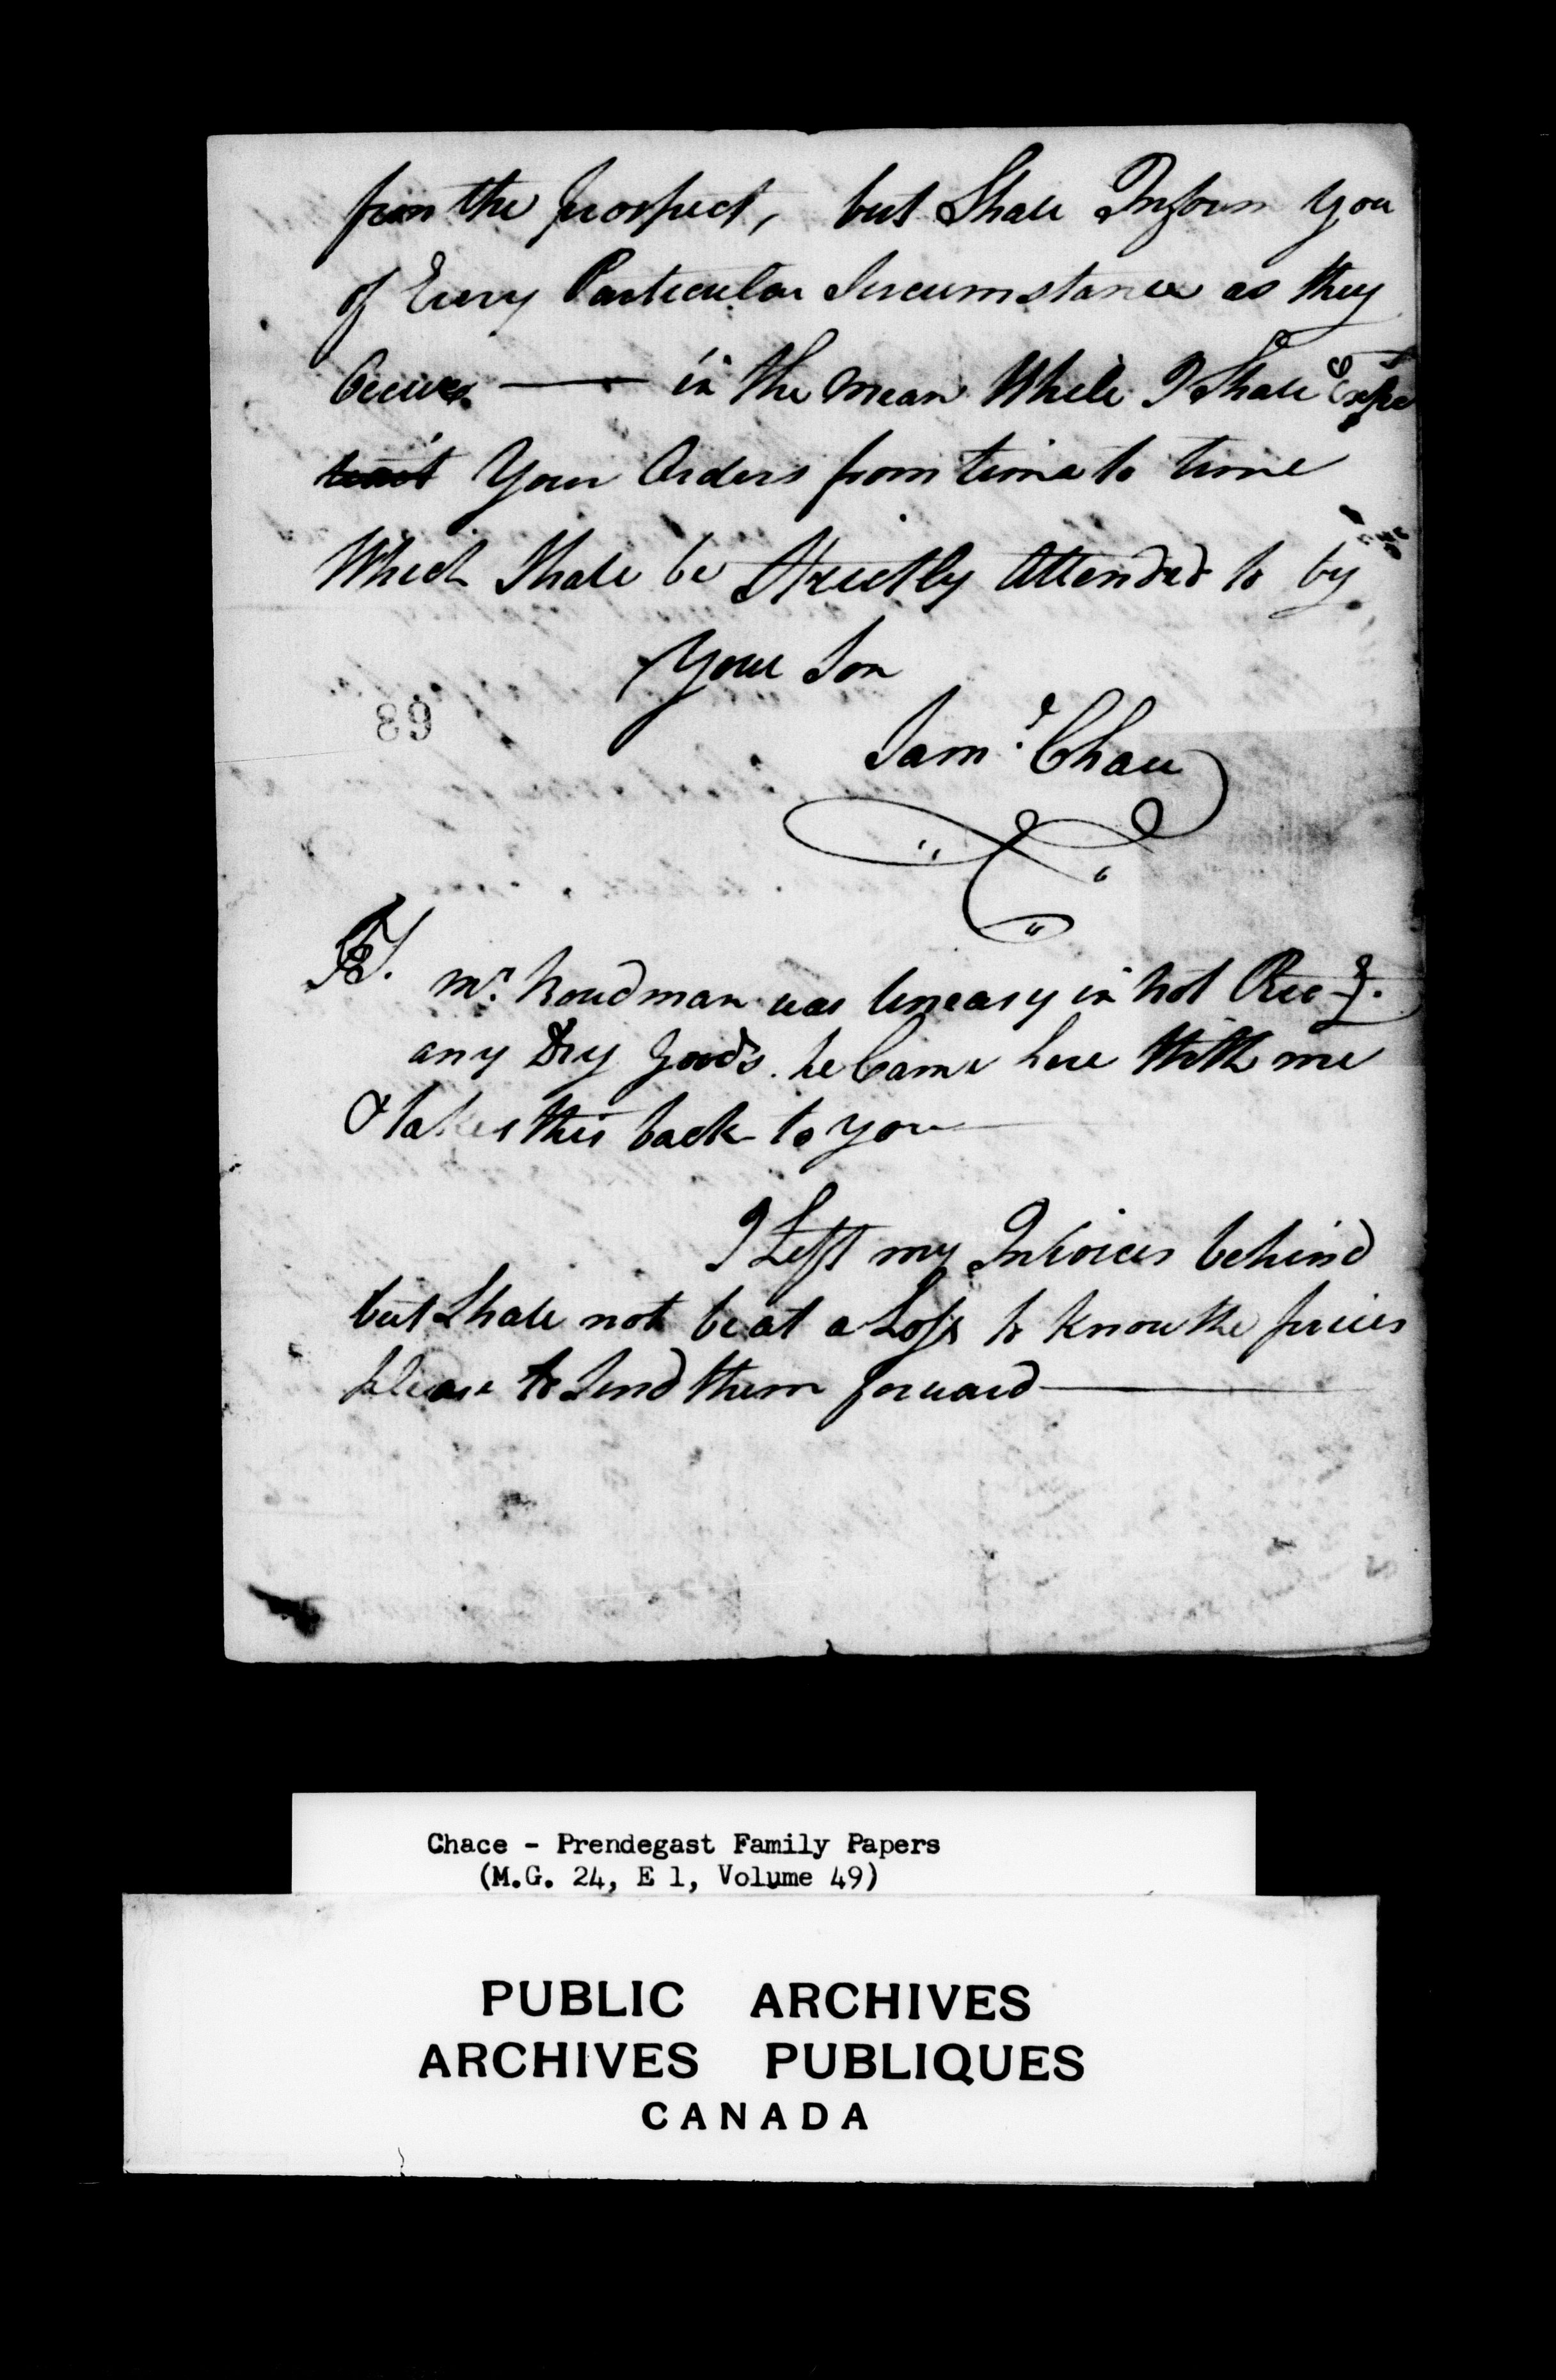 from the prospect, but Shall Inform you
of Every Particular Sircumstance as they
Occures — in the mean While I Shall Expe
wait Your Orders from time to time
Which Shall be Strictly Attended to by
Your Son
Sam.l Chace
89
PS.
Mr. Boudman was Uneasy in not Rec.g
any Dry Goods. he Came here With me
& takes this back to you
I Left my Invoices behind
but Shall not be at a Loss to know the prices
please to Send them forward —
Chace - Prendegast Family Papers
(M.G. 24, E 1, Volume 49)
PUBLIC ARCHIVES
ARCHIVES PUBLIQUES
CANADA